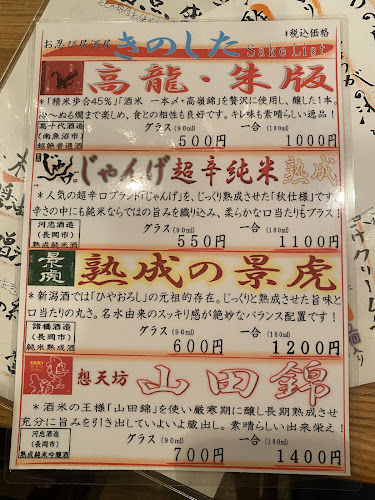 お忍び居酒屋 きのした Sake List *税込価格
高龍・朱版
*「精米歩合45%」「酒米 一本〆・高嶺錦」を贅沢に使用し、醸した1本。
冷~ぬる燗まで楽しめ、食との相性も良好です。キレ味も素晴らしい逸品!
高千代酒造
(南魚沼市)
超絶普通酒
グラス(90ml) 一合(180ml)
500円 1000円
じゃんげ超辛純米 熟成
*人気の超辛口ブランド『じゃんげ』を、じっくり熟成させた「秋仕様」です。
辛さの中にも純米ならではの旨みを織り込み、柔らかな口当たりもプラス!
河忠酒造
(長岡市)
熟成純米酒
グラス(90ml) 一合(180ml)
550円 1100円
景虎
熟成の景虎
*新潟酒では「ひやおろし」の元祖的存在。じっくりと熟成させた旨味と
口当たりの丸さ。名水由来のスッキリ感が絶妙なバランス配置です!
諸橋酒造
(長岡市)
純米熟成酒
グラス(90ml) 一合(180ml)
600円 1200円
想天坊 山田錦
*酒米の王様「山田錦」を使い厳寒期に醸し長期熟成させ
充分に旨みを引き出していよいよ蔵出し。素晴らしい出来栄え!
河忠酒造
(長岡市)
熟成純米吟醸酒
グラス(90ml) 一合(180ml)
700円 1400円